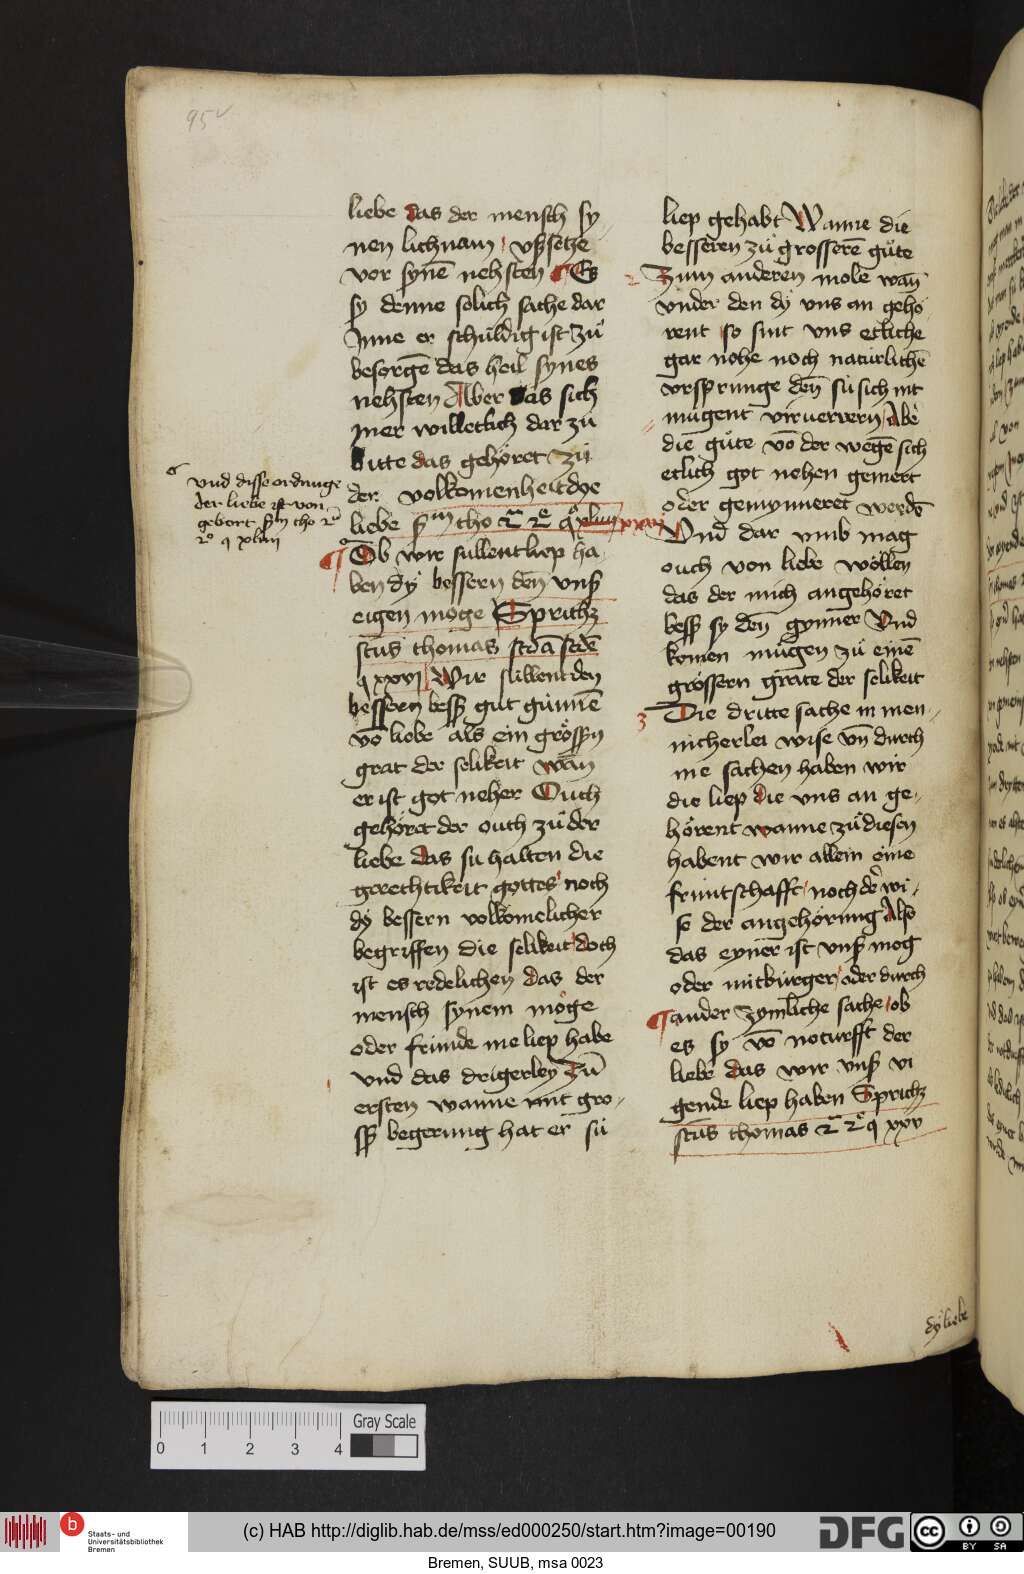 95v
liebe das der mensch sy-
nen lichnam vßsetze
vor synē nehsten ¶ Es
sy denne solich sache dar
Inne er schuldig ist zů
besorgē das heil synes
nehsten Aber das sich
ymer willetlich dar zů
bitte das gehöret zů
der volkomenheit dye
liebe
¶ Ob wir sullent liep ha-
ben dÿ bessern den̄ vnß
eigen moge Sprichz
sctūs thomas scd̄a scdē
q xxvj Wir sullent den
bessern besß gut gůnnē
vō liebe als ein größßn
grat der selikeit wān
er ist got neher Ouch
gehöret der ouch zů der
liebe das su halten die
gerechtikeit gottes noch
dÿ bessern volkōmelicher
begriffen die selikeit doch
ist es redelichen das der
mensch synem möge
oder frunde me liep habe
vnd das drigerley Zū
ersten wanne mit gro-
sß begerung hat er sü
und disse ordnunge
der liebe ist von
gebort
q xliiii
liep gehabt Wanne die
besseren zů grosserē gůte
Zum anderen mole wān
vnder den dÿ vns an geho-
rent so sint vns etliche
gar nohe noch naturlichē
vrsprunge den̄ sü sich nit
mugent viruerrern Abē
die gůte vō der wegē sich
etlich got nehen gemert
oder gemynneret werdē
Vnd dar vmb mag
ouch von liebe wöllen
das der mich angehöret
besß sy den̄ gynner Vnd
komen mügen zů einē
grössern grate der selikeit
3 Die dritte sache in men-
nicherlei wise vn̄ durch
me sachen haben wir
die liep die vns an ge-
hörent wanne zů diesen
habent wir allein eine
fruntschafft noch dē wi-
se der angehörung Also
das eyner ist vnß mog
oder mitburger oder durch
¶ ander zymliche sache ob
es sy vō noturfft der
liebe das wir vnß vi
gende liep haben Sprichz
sctūs thomas q xxv
dÿ liebe
Gray Scale
0 1 2 3 4
b
Staats- und
Universitätsbibliothek
Bremen
(c) HAB http://diglib.hab.de/mss/ed000250/start.htm?image=00190
DFG
cc
BY SA
Bremen, SUUB, msa 0023